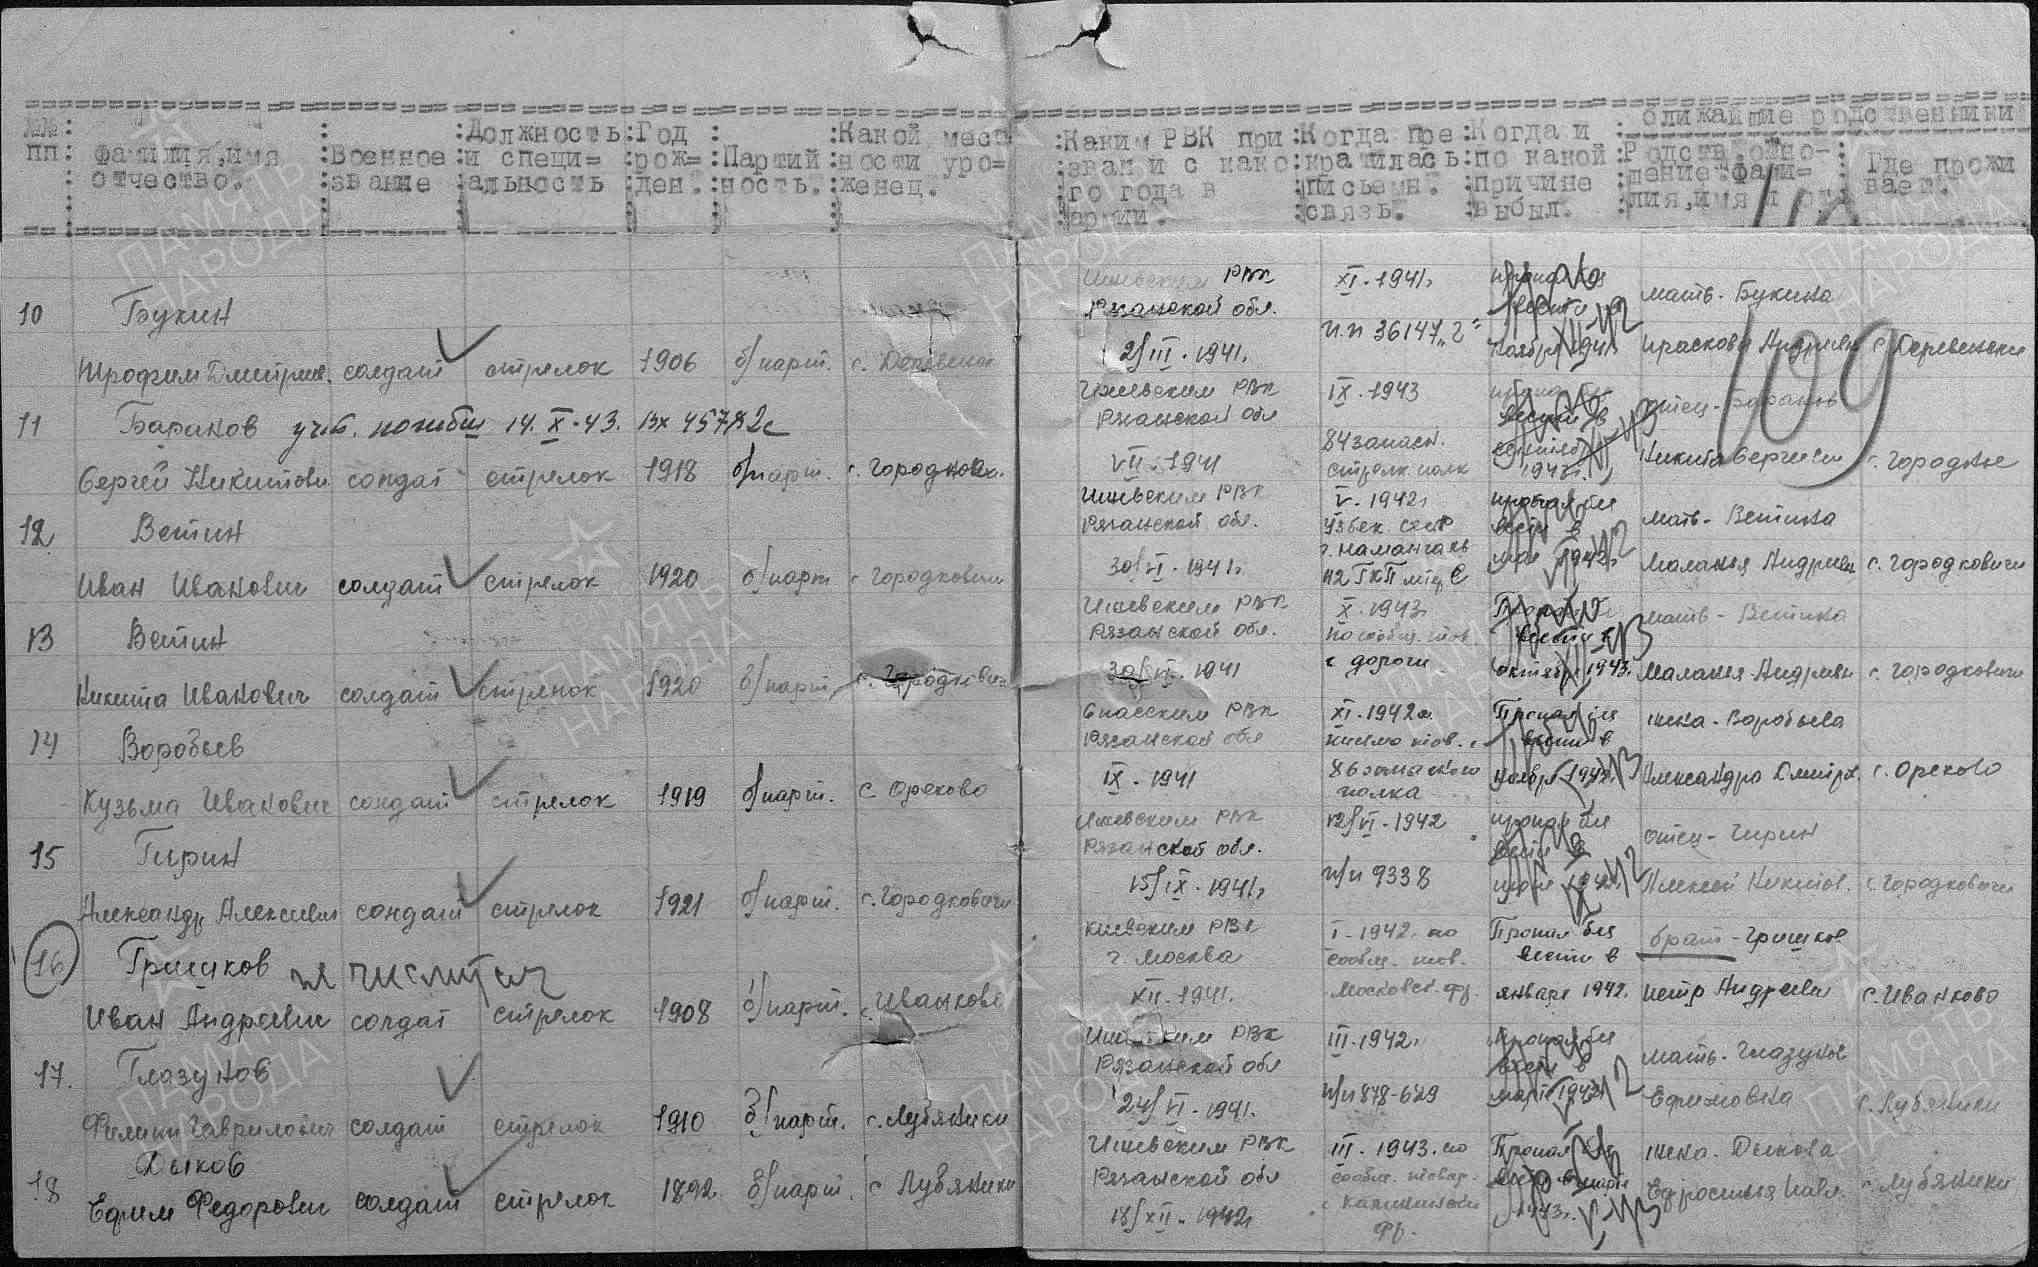 №№ пп:
Фамилия, имя отчество.
Военное звание
Должность и специ= альность
Год рож= ден.
Партий ность.
Какой мест ности уро= женец.
Каким РВК при зван и с како го года в армии.
Когда пре кратилась письмен. связь.
Когда и по какой причине выбыл.
ближайшие родственники
Родств. отно- шение фами- лия, имя и от
Где прожи вает.
109
10 Букин
Трофим Дмитриев. солдат стрелок 1906 б/парт. с.
Ижевским РВК Рязанской обл. 2/III. 1941г.
XI. 1941г. п.п 36147 "г"
пропал без вести в ноябре 1941г.
мать - Букина Прасковья Андреевн
11 Бараков учт. погибш 14.X.43. вх 45782с
Сергей Никитови солдат стрелок 1918 б/парт. с. Городкович.
Ижевским РВК Рязанской обл VII. 1941
IX. 1943 84 запасн. стрелк. полк
пропал без вести в 1943г.
отец - Бараков Никита Сергеевич
12 Ветин
Иван Иванович солдат стрелок 1920 б/парт с Городковичи
Ижевским РВК Рязанской обл. 30/VI. 1941г.
V. 1942г Узбек. ССР г. Наманган
пропал без вести в мае 1942г.
мать - Ветина Маланья Андреевн с. Городковичи
13 Ветин
Никита Иванович солдат стрелок 1920 б/парт. с. Городкович
Ижевским РВК Рязанской обл. 30/VI. 1941
X. 1943г по сообщ. тов. с дороги
Пропал без вести в октябре 1943г.
мать - Ветина Маланья Андреевн с. Городковичи
14 Воробьев
Кузьма Иванович солдат стрелок 1919 б/парт. с. Орехово
Спасским РВК Рязанской обл IX. 1941
XI. 1942г. письмо тов. с 86 полка
Пропал без вести в ноябре 1942г.
жена - Воробьева Александра Дмитр. с. Орехово
15 Гирин
Александр Алексеевич солдат стрелок 1921 б/парт. с. Городковичи
Ижевским РВК Рязанской обл. 15/IX. 1941г.
12/VI. 1942 п/п 9338
пропал без вести в июне 1942г.
отец - Гирин Алексей Никитов. с. Городковичи
16 Гришков не числится
Иван Андреевич солдат стрелок 1908 б/парт. с. Иваньково
Киевским РВК г. Москва XII. 1941.
I. 1942. по сообщ. тов. Московск. ф.
Пропал без вести в январе 1942.
брат - Гришков Петр Андреевич с. Иваньково
17. Глазунов
Филипп Гаврилович солдат стрелок 1910 б/парт. с. Лубяники
Ижевским РВК Рязанской обл 24/VI. 1941.
III. 1942г. п/п 878-629
Пропал без вести в марте 1942г.
мать - Глазунов Ефимовна с. Лубяники
18 Дьяков
Ефим Федорович солдат стрелок 1892 б/парт. с Лубяники
Ижевским РВК Рязанской обл 18/XII. 1942г
III. 1943. по сообщ. товар. с Калининский ф.
Пропал без вести в марте 1943г.
жена - Дьякова Ефросинья Павл. с. Лубяники
ПАМЯТЬ НАРОДА